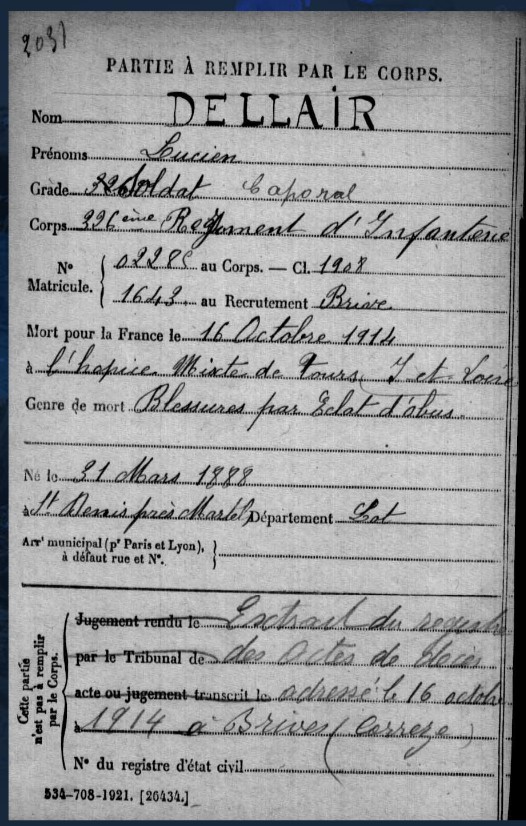 2031
PARTIE À REMPLIR PAR LE CORPS.
Nom DELLAIR
Prénoms Lucien
Grade Soldat Caporal
Corps 326ème Régiment d'Infanterie
N° Matricule. { 02285 au Corps. — Cl. 1908
1643 au Recrutement Brive
Mort pour la France le 16 Octobre 1914
à l'hospice Mixte de Tours (I et Loire
Genre de mort Blessures par Eclat d'obus
Né le 31 Mars 1888
à St Denis près Martel Département Lot
Arrt municipal (pr Paris et Lyon), à défaut rue et N°. }
Cette partie n'est pas à remplir par le Corps.
Jugement rendu le Extrait du registre
par le Tribunal de des actes de décès
acte ou jugement transcrit le adressé le 16 octobre
à 1914 à Brives (Corrèze)
N° du registre d'état civil
534-708-1921. [26434.]